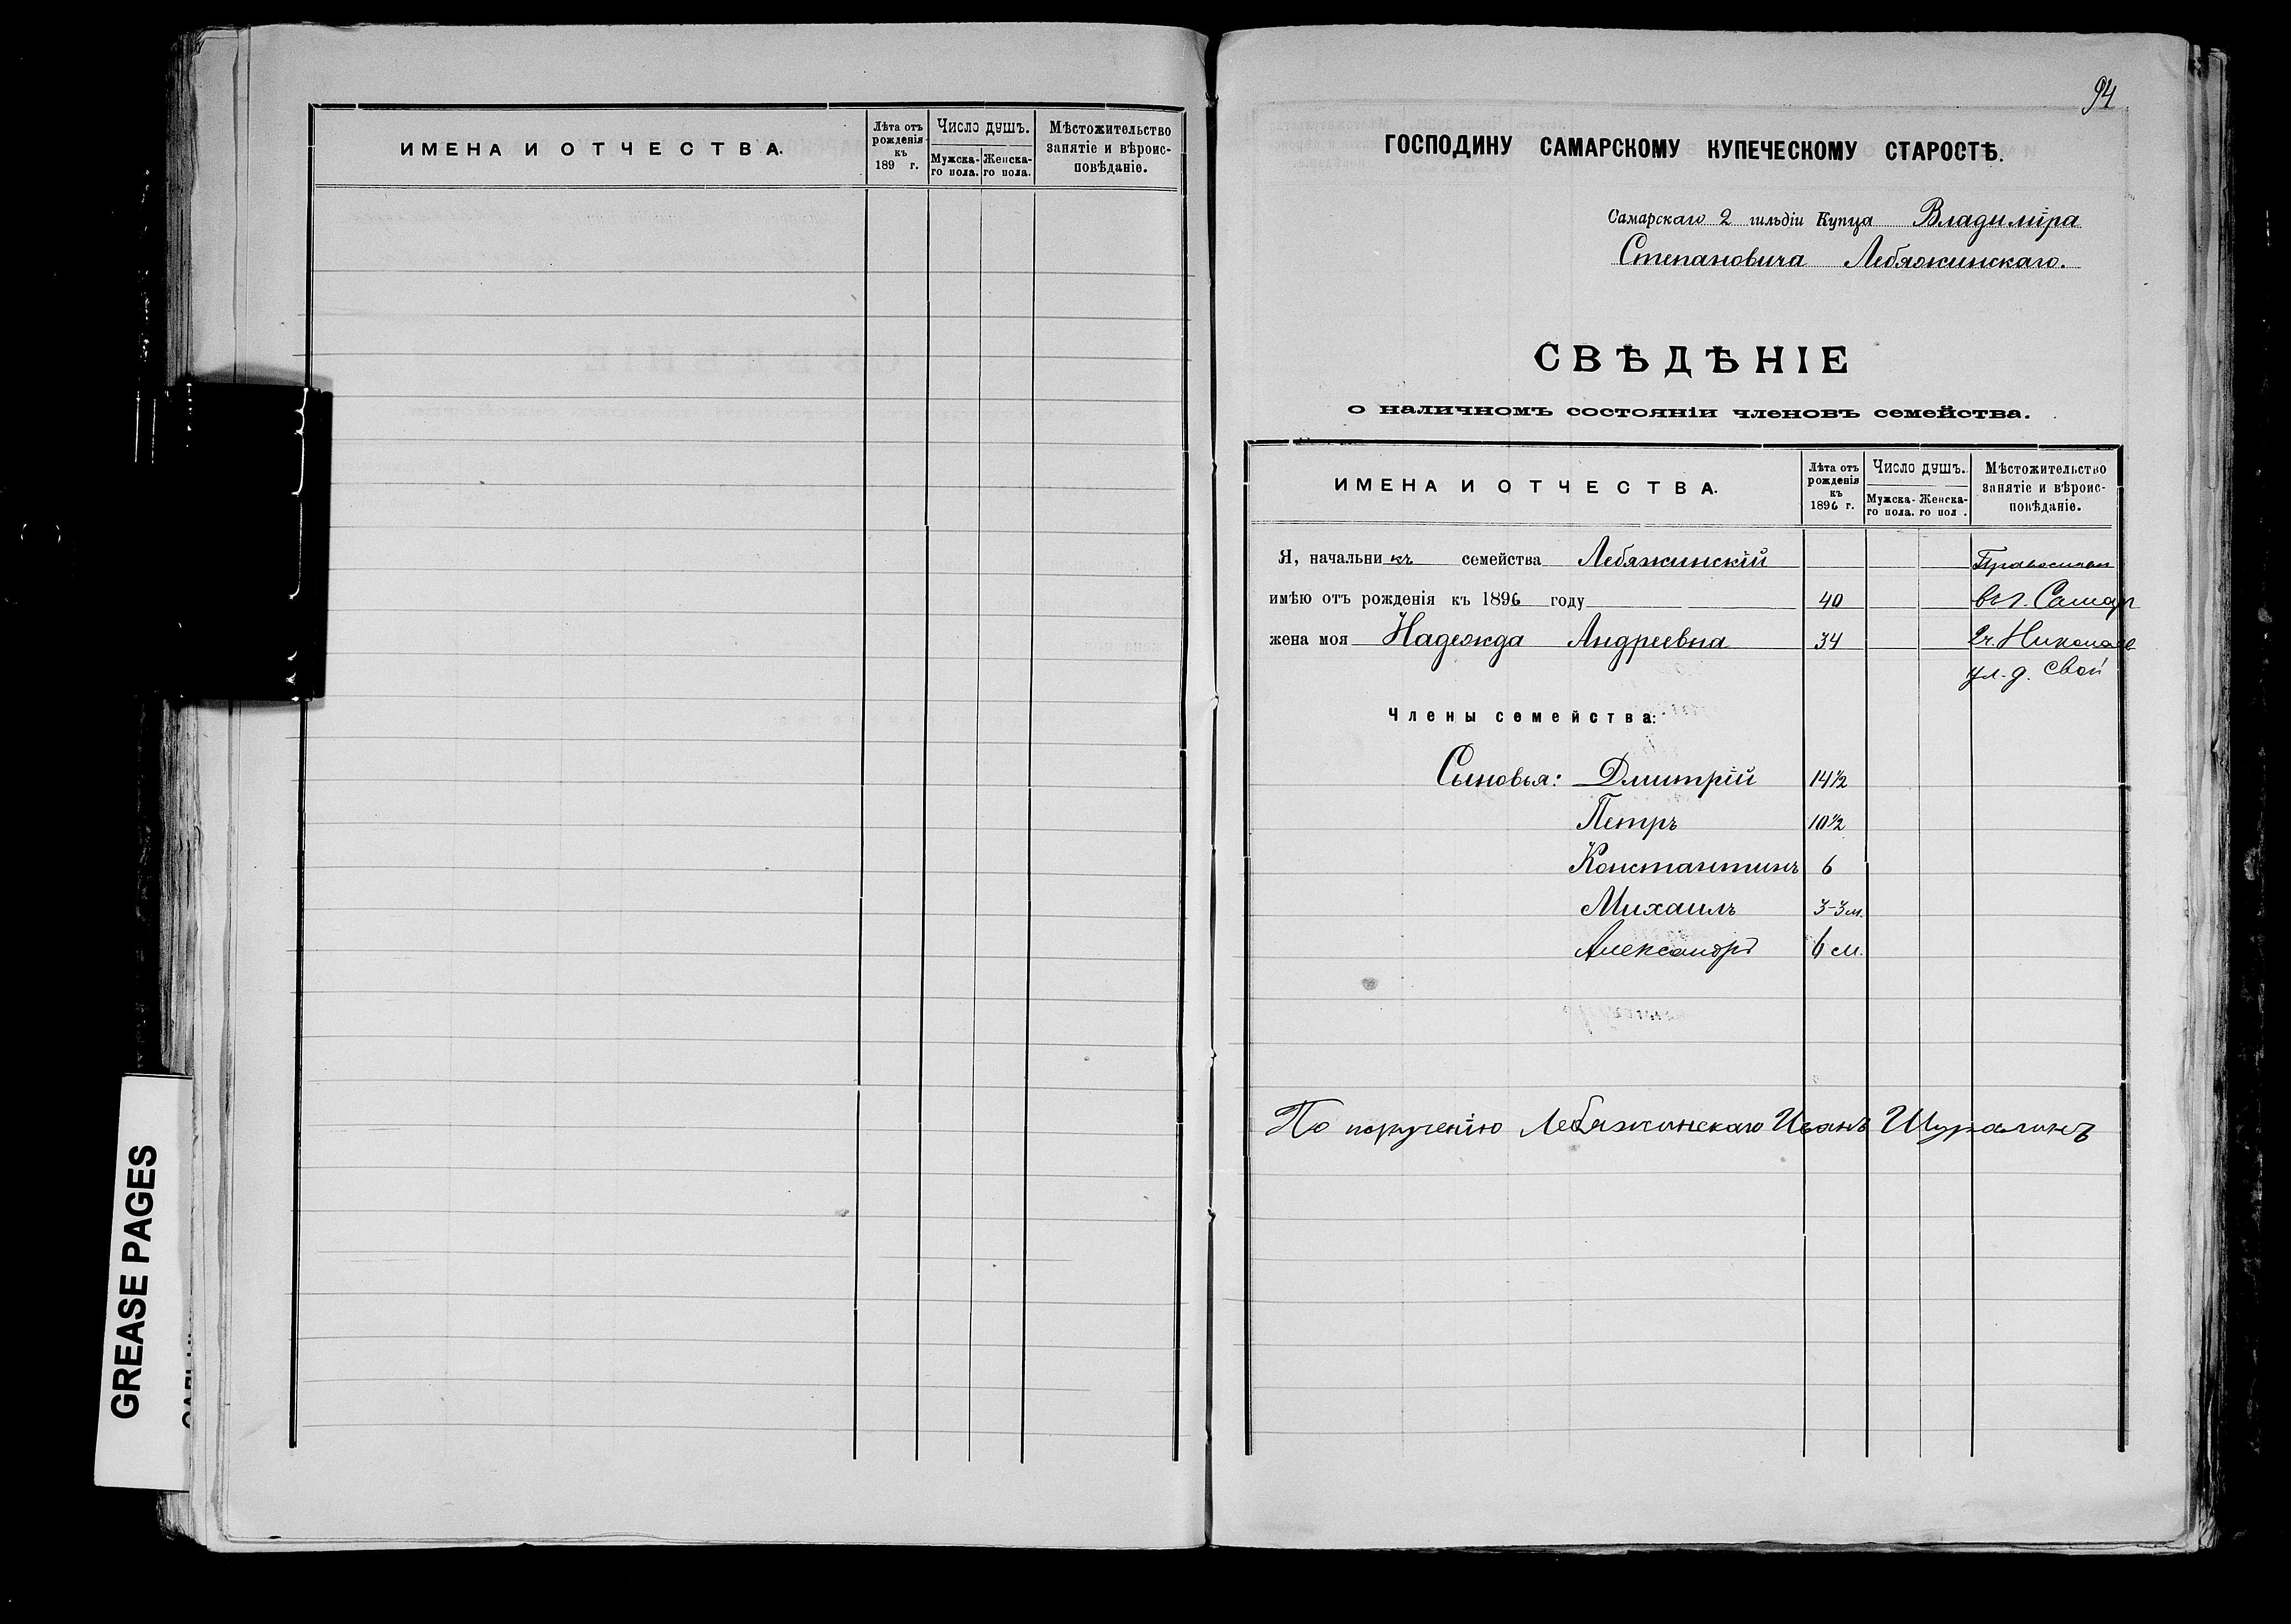 ИМЕНА И ОТЧЕСТВА.
Лѣта отъ рожденія къ 189 г.
Число душъ.
Мужска-го пола.
Женска-го пола.
Мѣстожительство занятіе и вѣроис-повѣданіе.
GREASE PAGES
94
ГОСПОДИНУ САМАРСКОМУ КУПЕЧЕСКОМУ СТАРОСТѢ.
Самарскаго 2 гильдіи Купца Владиміра
Степановича Лебяжинскаго.
СВѢДѢНІЕ
о наличномъ состояніи членовъ семейства.
ИМЕНА И ОТЧЕСТВА.
Лѣта отъ рожденія къ 1896 г.
Число душъ.
Мужска-го пола.
Женска-го пол .
Мѣстожительство занятіе и вѣроис-повѣданіе.
Я, начальникъ семейства Лебяжинскій Православн
имѣю отъ рожденія къ 1896 году 40 въ г. Самар
жена моя Надежда Андреевна 34 2 ч. Николаев
ул. д. свой
Члены семейства:
Сыновья: Дмитрій 14½
Петръ 10½
Константинъ 6
Михаилъ 3-3 м.
Александръ 6 м.
По порученію Лебяжинскаго Иванъ Шуралинъ